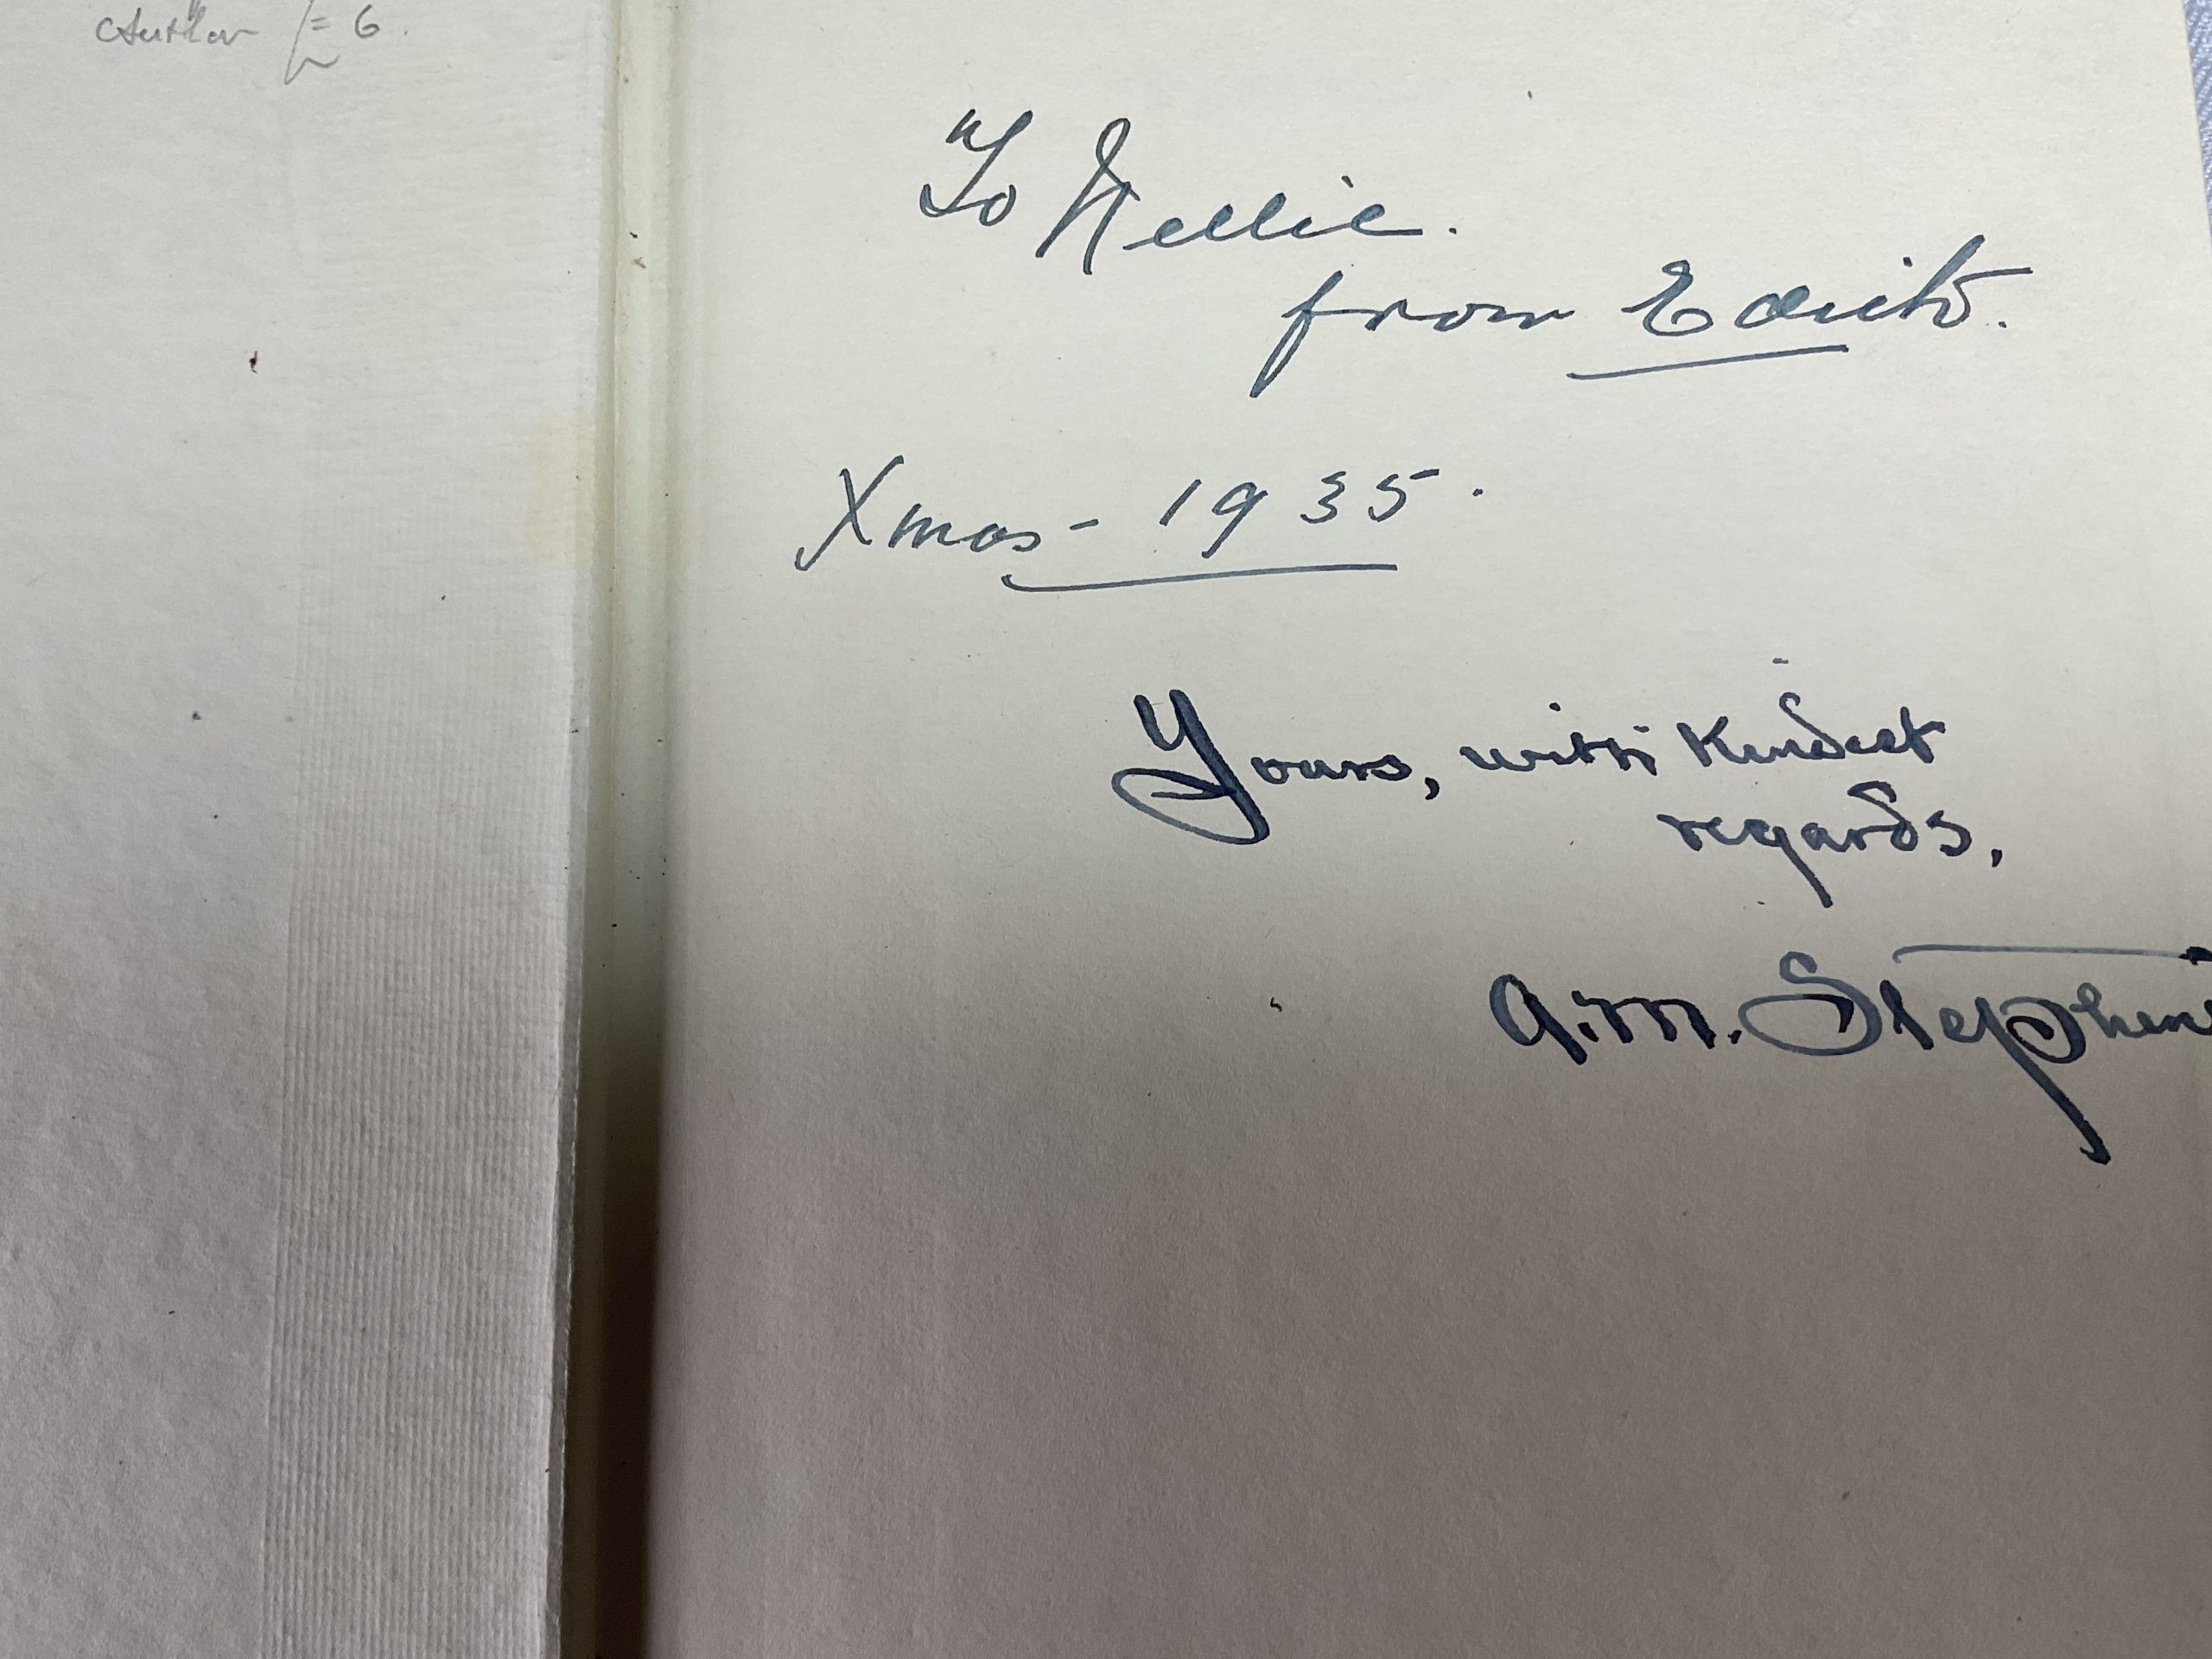 Author £6.
To Nellie.
from Edith.
Xmas - 1935.
Yours, with kindest
regards,
A.M. Stephen